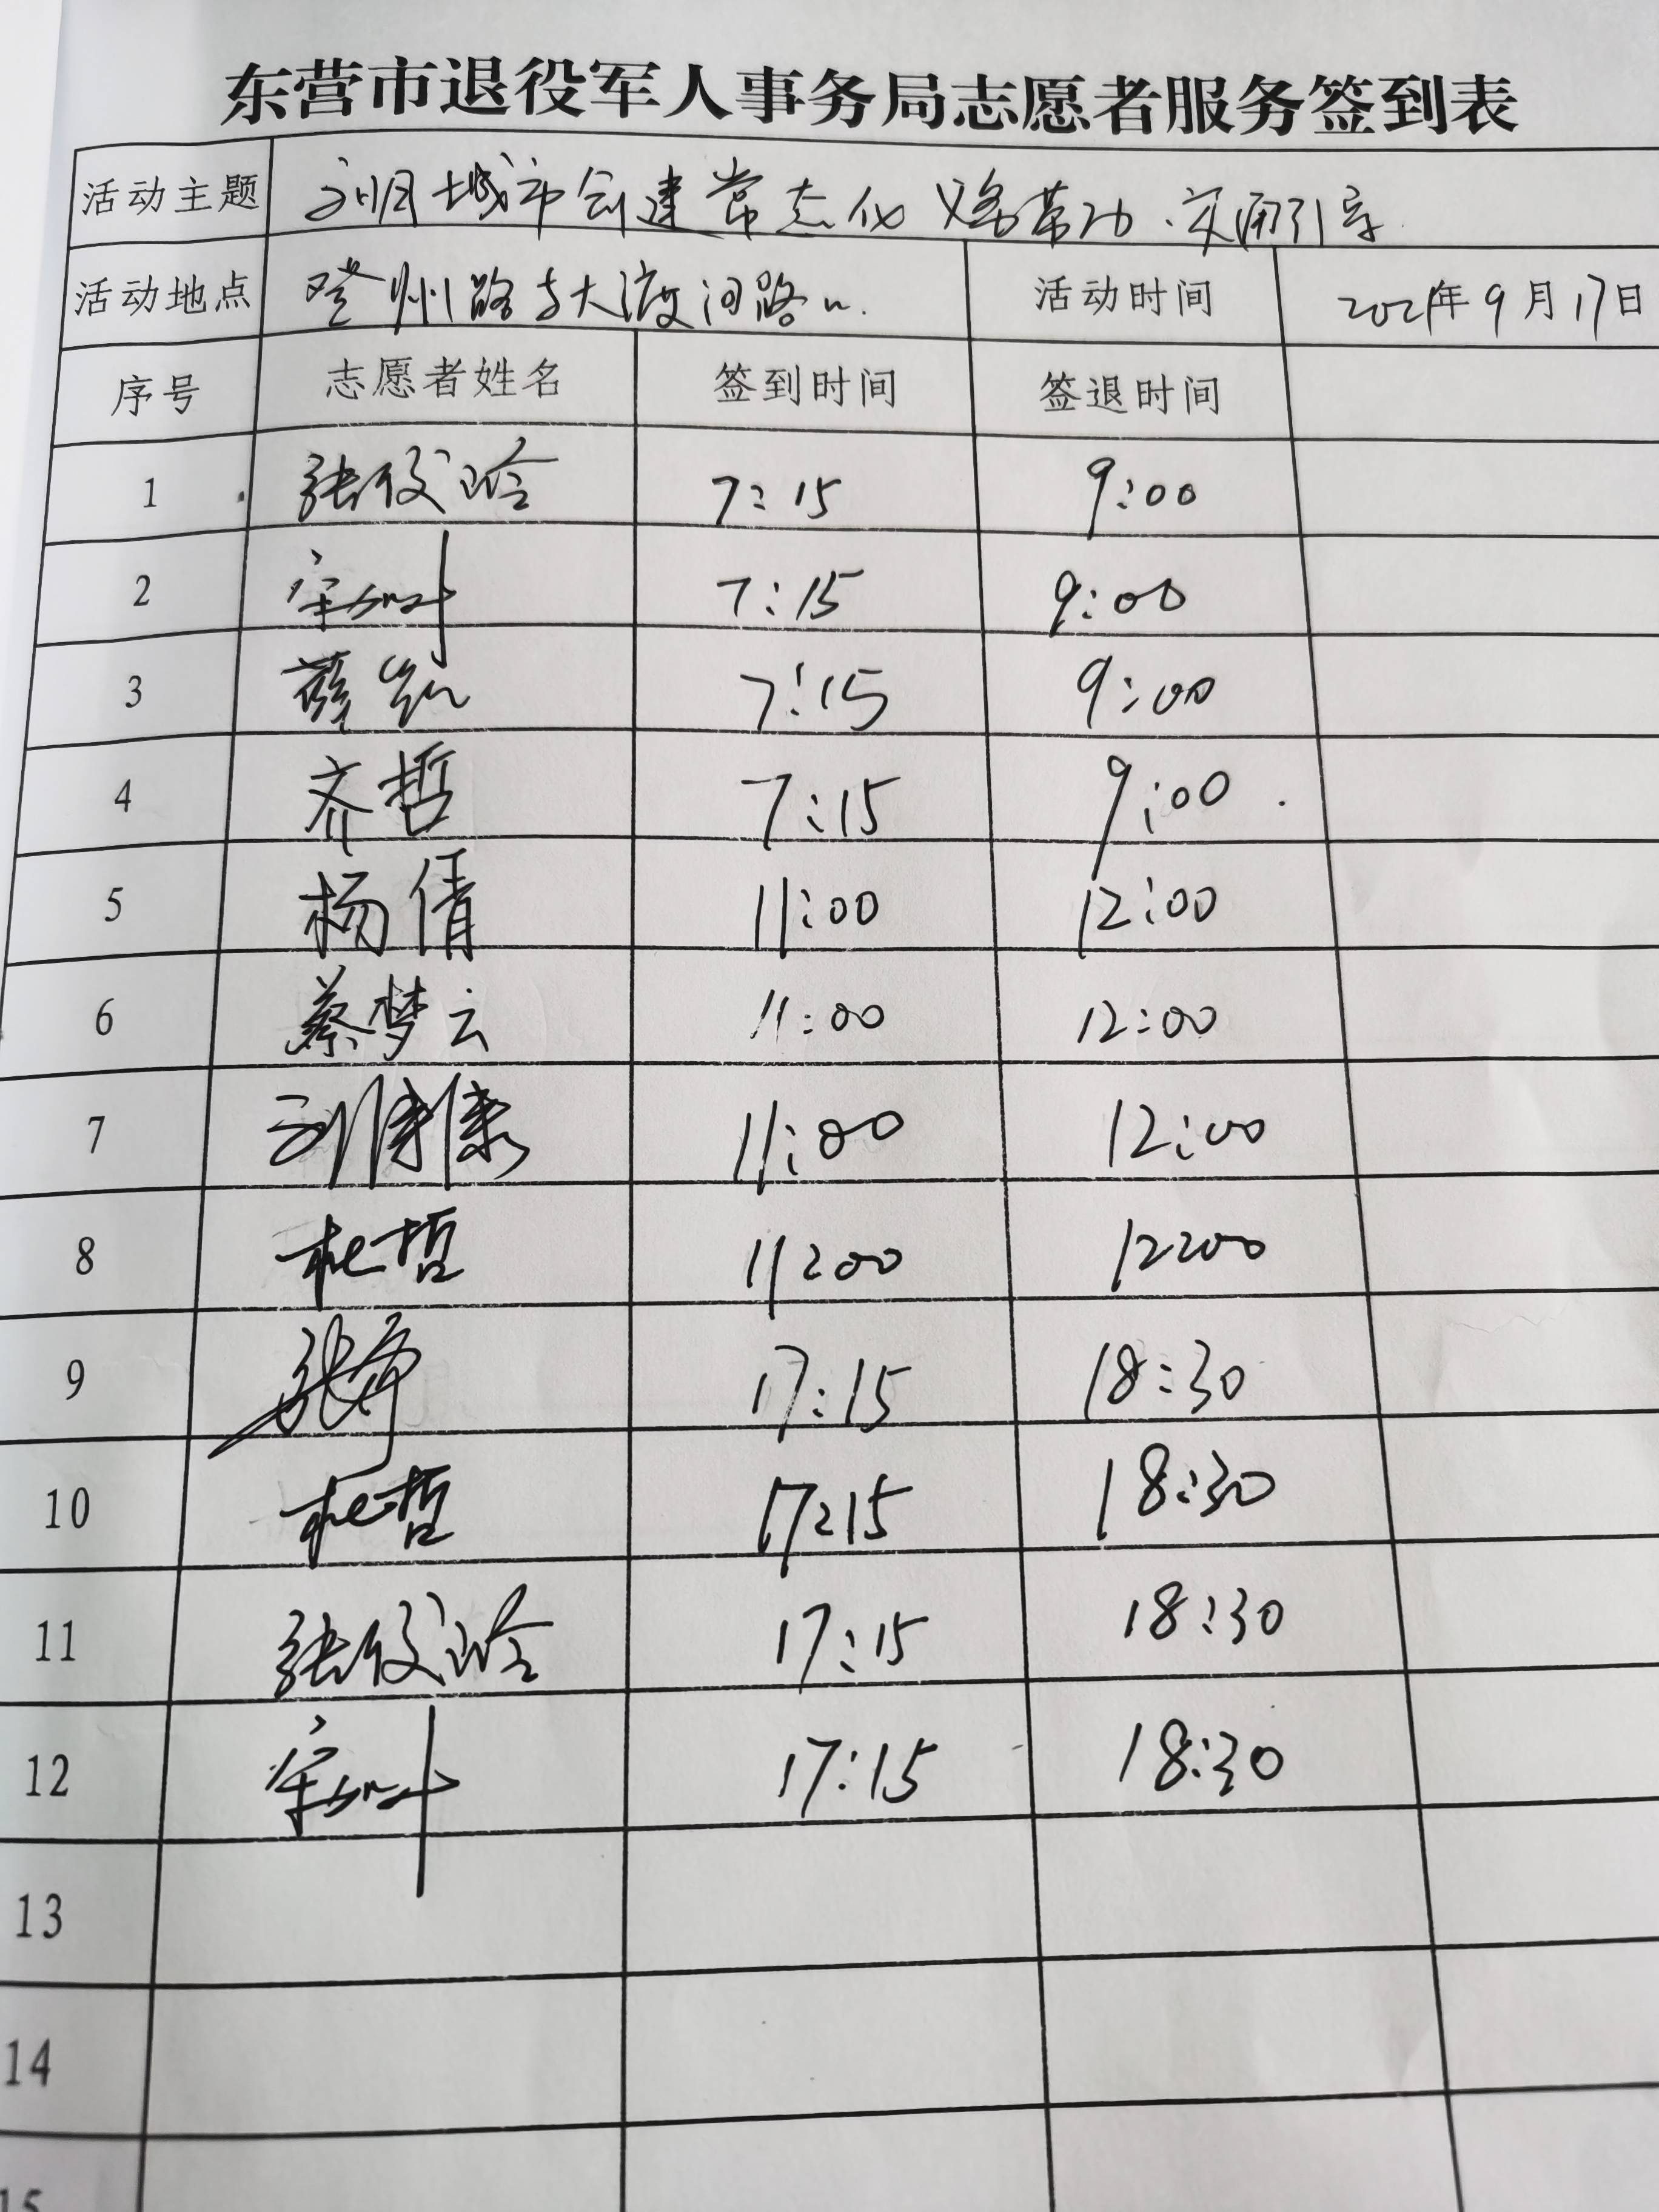 东营市退役军人事务局志愿者服务签到表
活动主题 文明城市创建常态化 义务劳动、交通引导
活动地点 登州路与大渡河路口 活动时间 2021年9月17日
序号 志愿者姓名 签到时间 签退时间
1 张俊玲 7:15 9:00
2 7:15 9:00
3 薛 7:15 9:00
4 齐哲 7:15 9:00
5 杨倩 11:00 12:00
6 蔡梦云 11:00 12:00
7 刘 11:00 12:00
8 杜哲 11:00 12:00
9 张 17:15 18:30
10 杜哲 17:15 18:30
11 张俊玲 17:15 18:30
12 17:15 18:30
13
14
15